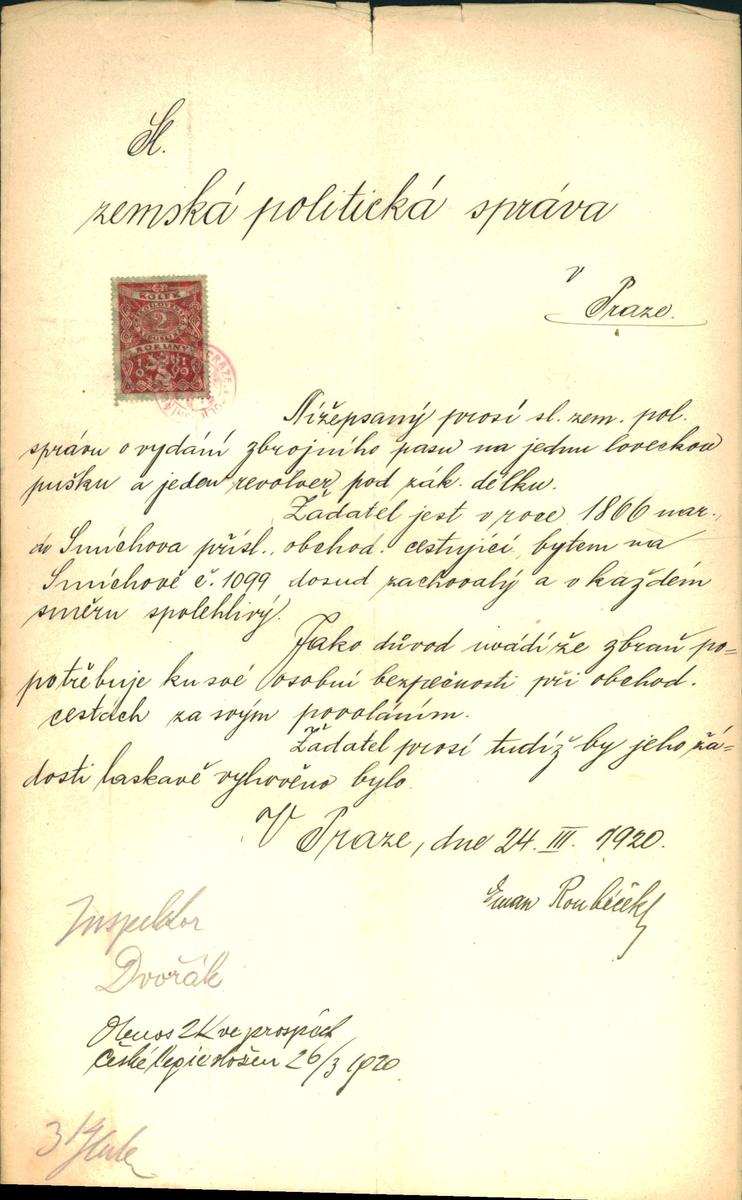 Sl.
zemská politická správa
v
Praze.
KOLEK
2
KORUNY
1919
Nížepsaný prosí sl. zem. pol.
správu o vydání zbrojního pasu na jednu loveckou
pušku a jeden revolver pod zák. délku.
Žadatel jest v roce 1866 nar.,
do Smíchova přísl., obchod. cestující, bytem na
Smíchově č. 1099 dosud zachovalý a v každém
směru spolehlivý.
Jako důvod uvádí že zbraň po=
potřebuje ku své osobní bezpečnosti při obchod.
cestách za svým povoláním.
Žadatel prosí tudíž by jeho žá=
dosti laskavě vyhověno bylo.
V Praze, dne 24. III. 1920.
Eman Roubíček
Inspektor
Dvořák
Obnos 2K ve prospěch
České legie složen 26/3 1920